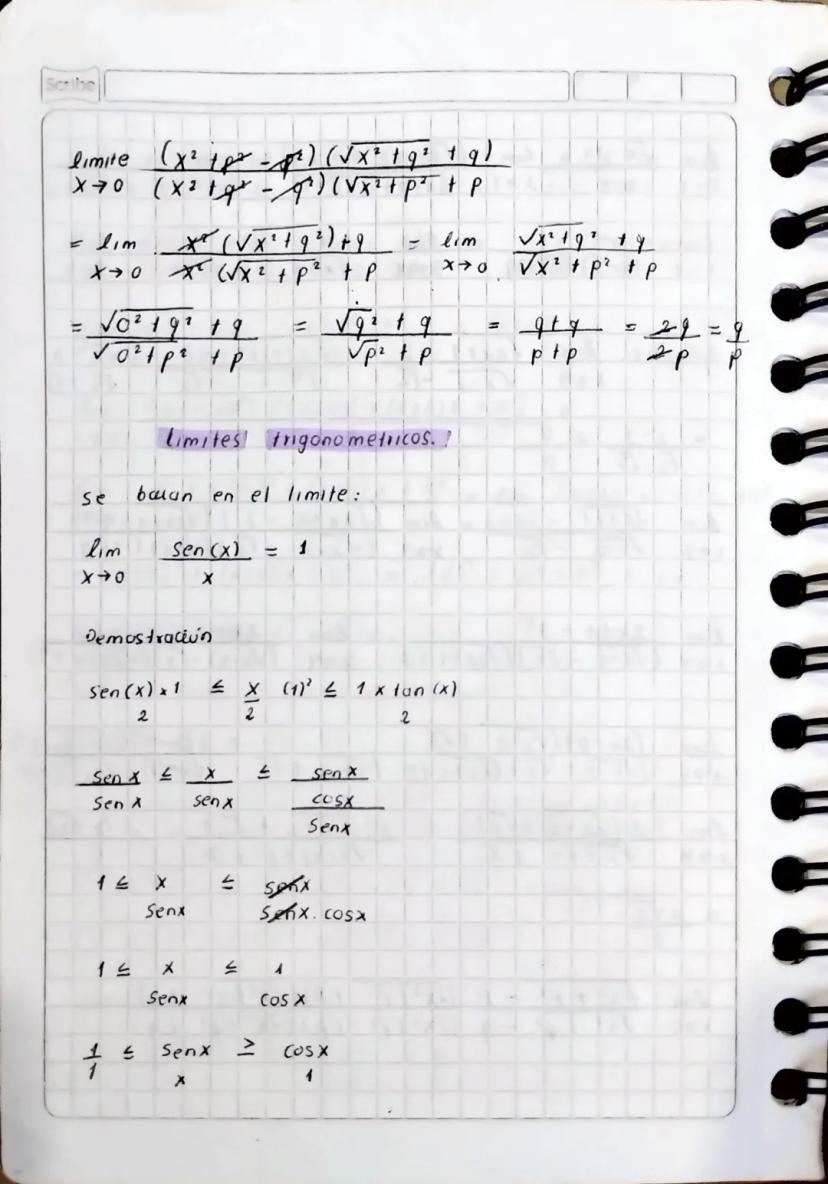 Scribe
limite (x² + p² - p²) (√x² + q² + q)
x→0 (x² + q² - q²) (√x² + p² + p
= lim x² (√x² + q²) + q = lim √x² + q² + q
x→0 x² (√x² + p² + p x→0 √x² + p² + p
= √0² + q² + q = √q² + q = q + q = 2q = q
√0² + p² + p √p² + p p + p 2p p
limites trigonometricos.
se basan en el limite:
lim sen(x) = 1
x→0 x
Demostración
sen(x) × 1 ≤ x (1)² ≤ 1 × tan(x)
2 2 2
sen x ≤ x ≤ sen x
sen x sen x cosx
senx
1 ≤ x ≤ senx
senx senx . cosx
1 ≤ x ≤ 1
senx cosx
1 ≤ senx ≥ cosx
1 x 1